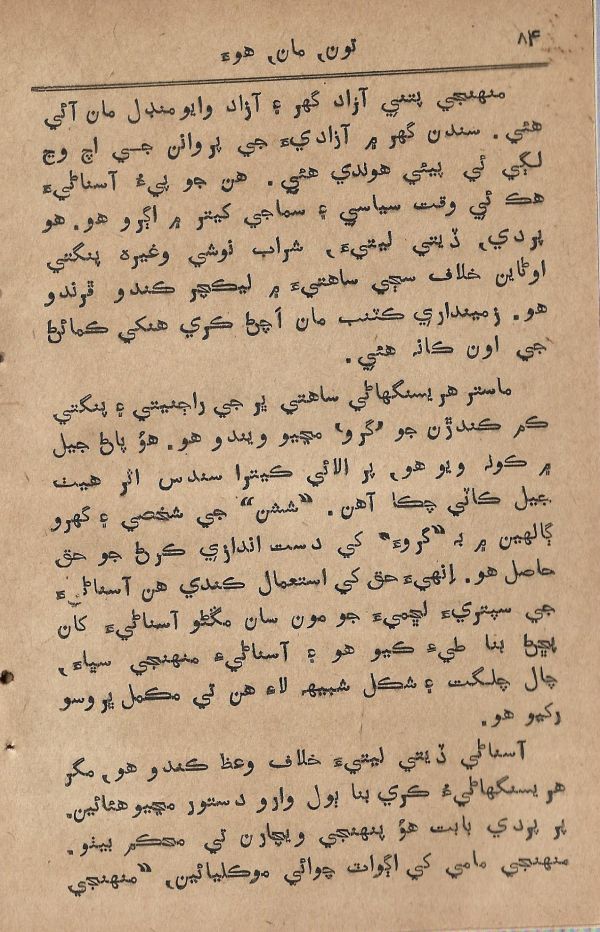 ۸۴
تون، مان، هوءَ
منهنجي پتني آزاد گهر ۽ آزاد وايومنڊل مان آئي
هئي. سندن گهر ۾ آزاديءَ جي پروانن جي اچ وڃ
لڳي ئي پيئي هوندي هئي. هن جو پيءُ آسناڻيءَ
هڪ ئي وقت سياسي ۽ سماجي کيتر ۾ اڳرو هو. هو
پردي، ڏيتي ليتيءَ، شراب نوشي وغيره پنگتي
اوڻاين خلاف سڄي ساهتيءَ ۾ ليڪچر ڪندو ڦرندو
هو. زمينداري ڪٽنب مان اَچڻ ڪري هنکي ڪمائڻ
جي اون ڪانہ هئي.
ماستر هربسنگهاڻي ساهتي ڀر جي راجنيتي ۽ پنگتي
ڪم ڪندڙن جو ‘گرو’ مڃيو ويندو هو. هوُ پاڻ جيل
۾ ڪونہ ويو هو، پر الائي ڪيترا سندس اثر هيٺ
جيل ڪاٽي چڪا آهن. “ششن” جي شخصي ۽ گهرو
ڳالهين ۾ بہ “گروءَ” کي دست اندازي ڪرڻ جو حق
حاصل هو. اِنهيءَ حق کي استعمال ڪندي هن آسناڻيءَ
جي سپتريءَ لڇميءَ جو مون سان مڱڻو آسناڻيءَ کان
پڇڻ بنا طيءَ ڪيو هو ۽ آسناڻيءَ منهنجي سڀاءَ،
چال چلگت ۽ شڪل شبيهہ لاءَ هن تي مڪمل ڀروسو
رکيو هو.
آسناڻي ڏيتي ليتيءَ خلاف وعظ ڪندو هو، مگر
هربسنگهاڻيءُ ڪري بنا ٻول وارو دستور مڃيو هئائين.
پر پردي بابت هوُ پنهنجي ويچارن تي محڪم بيٺو.
منهنجي مامي کي اڳواٽ چوائي موڪليائين، “منهنجي